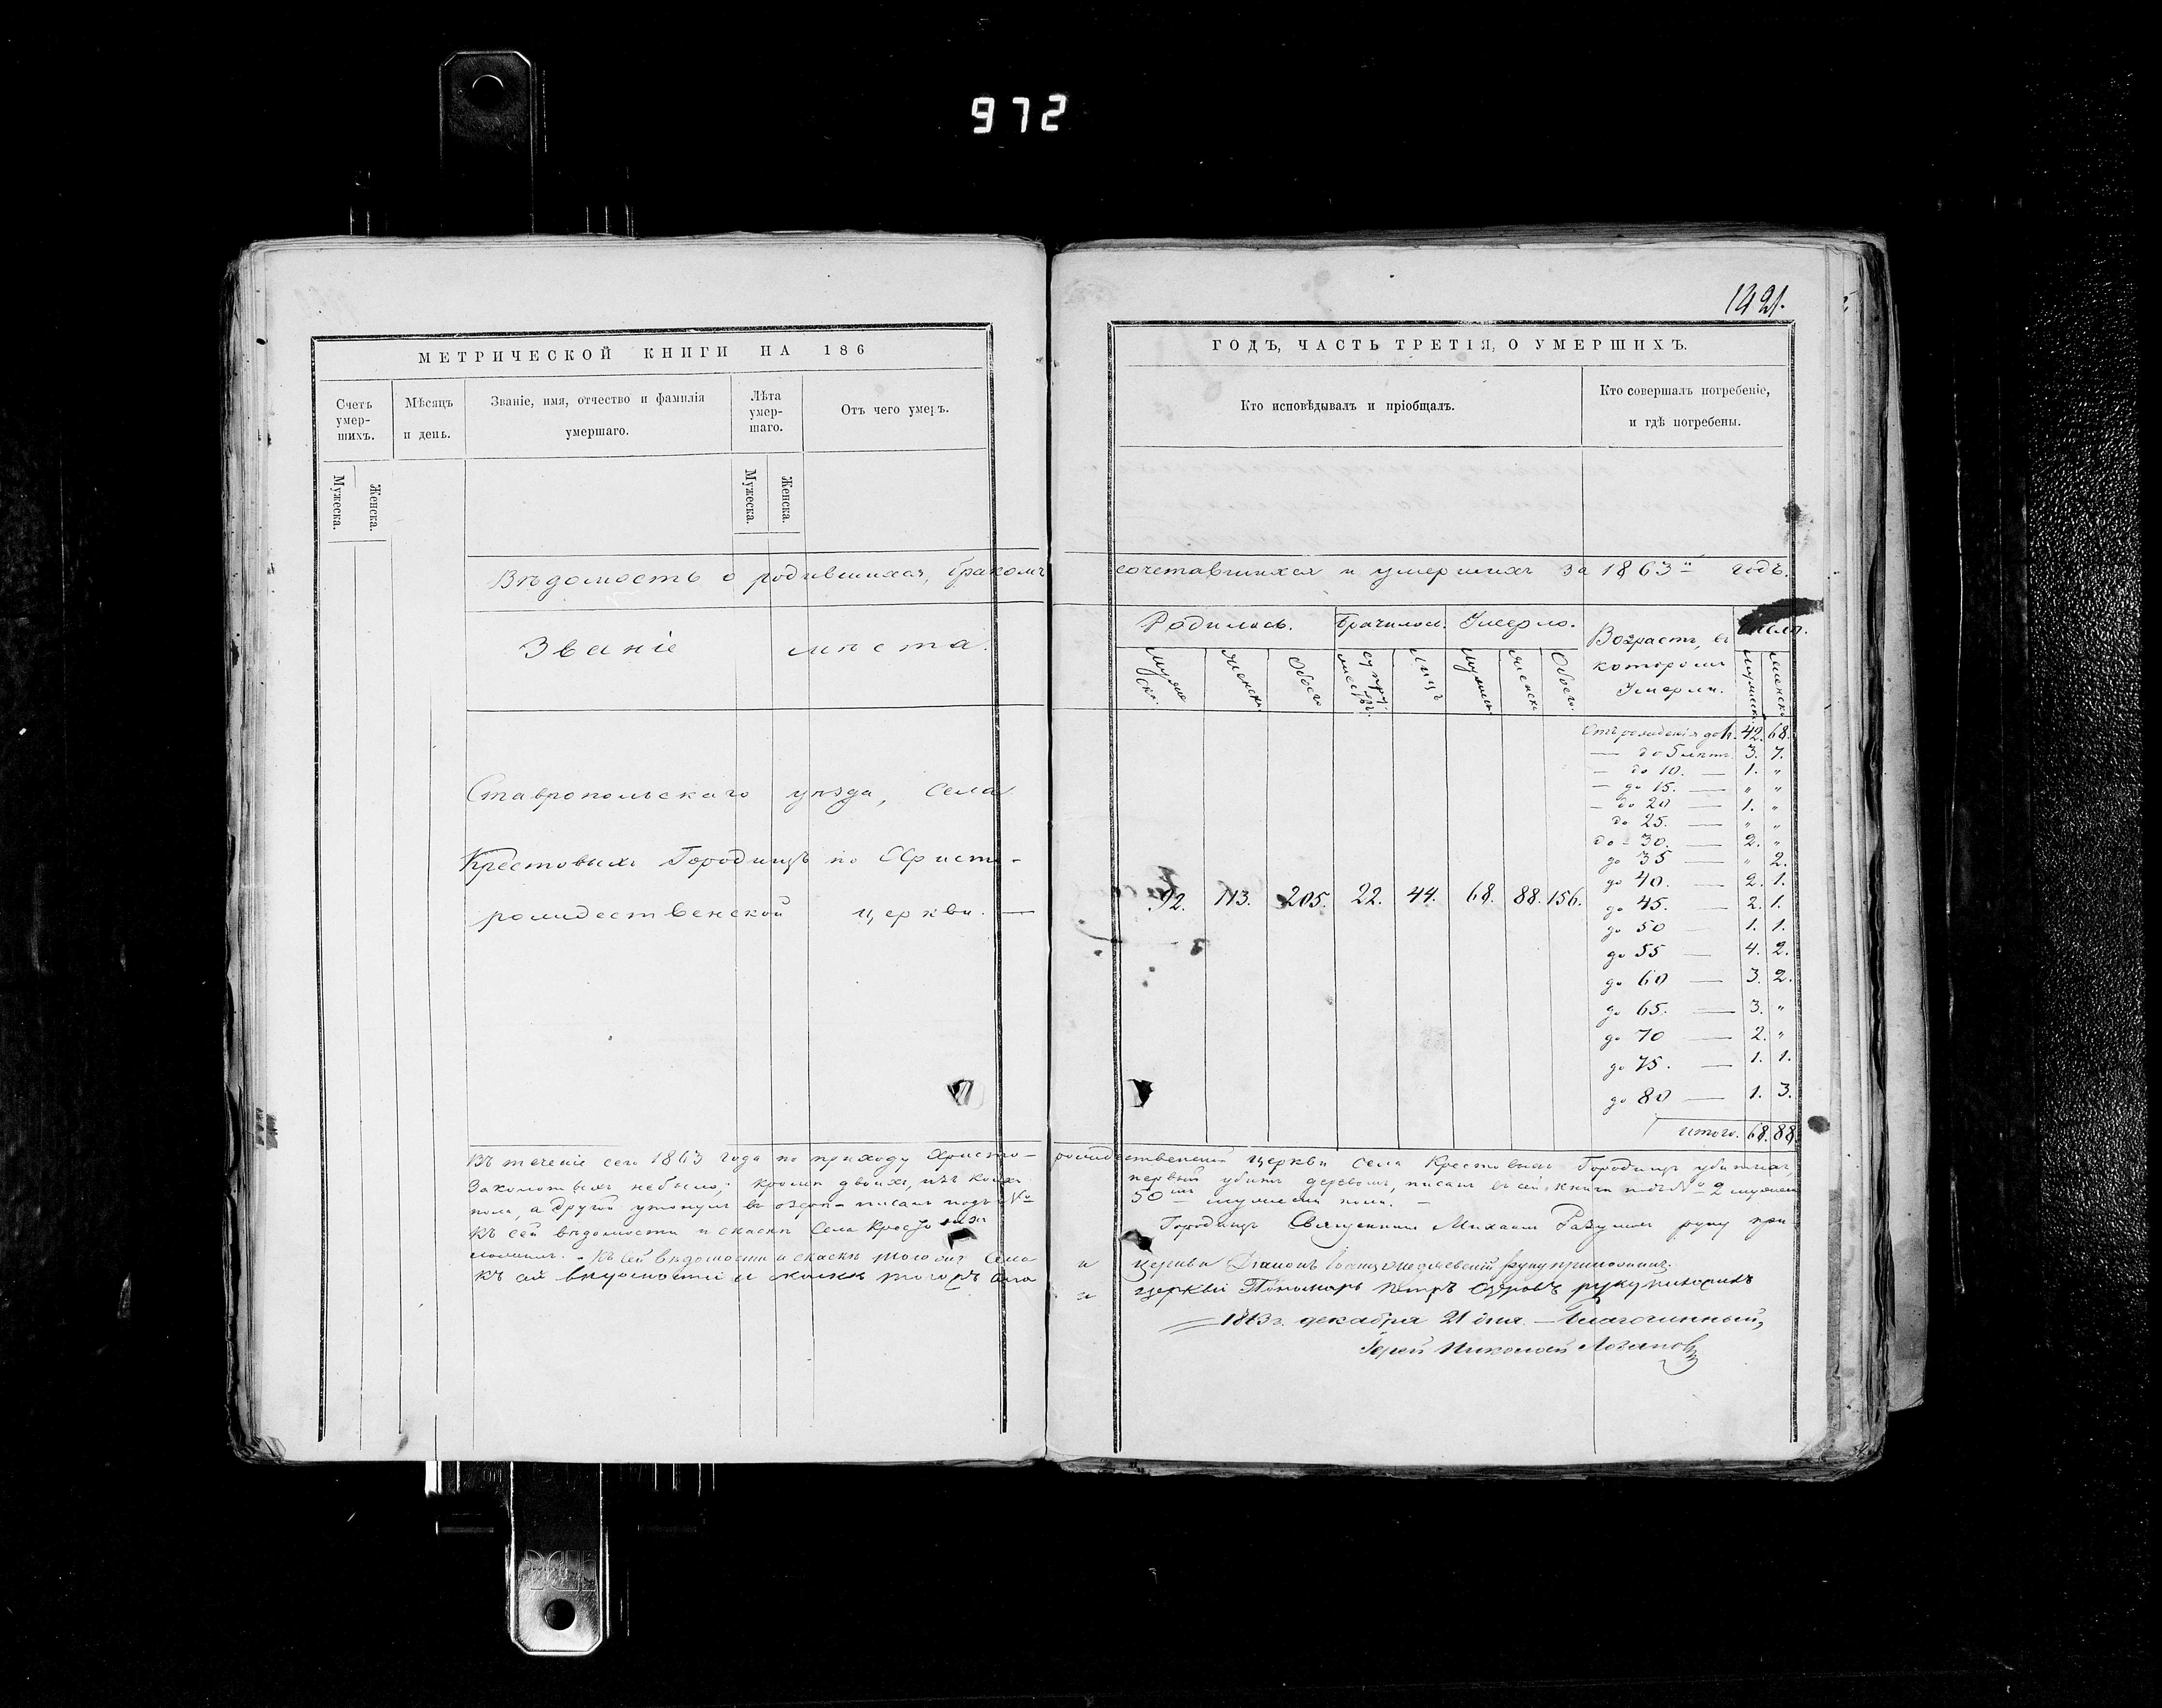 972
1421.
МЕТРИЧЕСКОЙ КНИГИ НА 186
Счетъ умер-шихъ.
Мѣсяцъ и день.
Званіе, имя, отчество и фамилія умершаго.
Лѣта умер-шаго.
Отъ чего умеръ.
Мужеска.
Женска.
Мужеска.
Женска.
Вѣдомость о родившихся, бракомъ
Званіе мѣста.
Ставропольскаго уѣзда, села
Крестовыхъ Городищъ по Христо-
рождественской церкви. —
Въ теченіе сего 1863 года по приходу Христо-
закомотыхъ небыло, кромѣ двоихъ, изъ коихъ
пола, а другой утонулъ въ озерѣ – писанъ подъ №
къ сей вѣдомости и скаскѣ Села Крестовыхъ
ложилъ. – Къ сей вѣдомости и скаскѣ того же Села
къ сей вѣдомости и скаскѣ тогожъ села
ГОДЪ, ЧАСТЬ ТРЕТІЯ, О УМЕРШИХЪ.
Кто исповѣдывалъ и пріобщалъ.
Кто совершалъ погребеніе, и гдѣ погребены.
сочетавшихся и умершихъ за 1863й годъ.
Родилось.
Брачилось.
Умерло.
Возрастъ, въ которомъ Умерли.
Число.
Мужеска.
Женска.
Обоего
супружествъ.
лицъ
Мужеска
Женска
Обоего.
Мужеска.
Женска
92. 113. 205. 22. 44. 68. 88. 156.
Отъ рожденія до 1. 42. 68.
— до 5 лѣтъ 3. 7.
— до 10. — 1. "
— до 15. — " "
— до 20 — 1. "
до 25. — " "
до 30. — 2. "
до 35 — " 2.
до 40. — 2. 1.
до 45. — 2. 1.
до 50 — 1. 1.
до 55 — 4. 2.
до 60 — 3. 2.
до 65. — 3. "
до 70 — 2. "
до 75. — 1. 1.
до 80 — 1. 3.
итого. 68. 88.
рождественской церкви села Крестовыхъ Городищъ убитыхъ,
первый убитъ деревомъ, писанъ въ сей книгѣ подъ № 2 мужеска
50мъ мужеска пола. —
Городищъ Священникъ Михаилъ Разумовъ руку при
и церкви Діаконъ руку приложилъ.
и церкви Пономарь Петръ Озеровъ руку приложилъ
1863 г. декабря 21 дня. — Благочинный,
Іерей Николай Логановъ